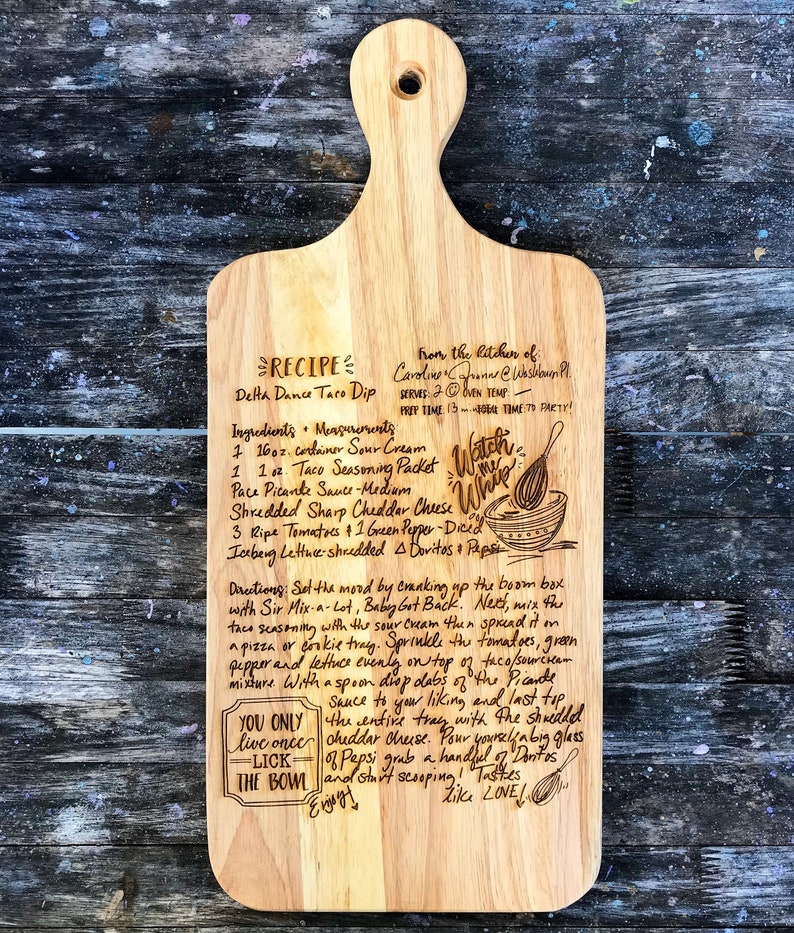 RECIPE
Delta Dance Taco Dip
From the Kitchen of:
Caroline & @ Washburn Pl.
SERVES: 2 ☺ OVEN TEMP: —
PREP TIME: 13 min TIME: TO PARTY!
Ingredients + Measurements:
1 16 oz. container Sour Cream
1 1 oz. Taco Seasoning Packet
Pace Picante Sauce - Medium
Shredded Sharp Cheddar Cheese
3 Ripe Tomatoes & 1 Green Pepper - Diced
Iceberg Lettuce - shredded △ Doritos & Pepsi
Watch
me
Whip
Directions: Set the mood by cranking up the boom box
with Sir Mix-a-Lot, Baby Got Back. Next, mix the
taco seasoning with the sour cream then spread it on
a pizza or cookie tray. Sprinkle the tomatoes, green
pepper and lettuce evenly on top of taco/sourcream
mixture. With a spoon drop dabs of the Picante
sauce to your liking and last top
the entire tray with the shredded
cheddar cheese. Pour yourself a big glass
of Pepsi grab a handful of Doritos
and start scooping! Tastes
like LOVE!
Enjoy!
YOU ONLY
live once
LICK
THE BOWL